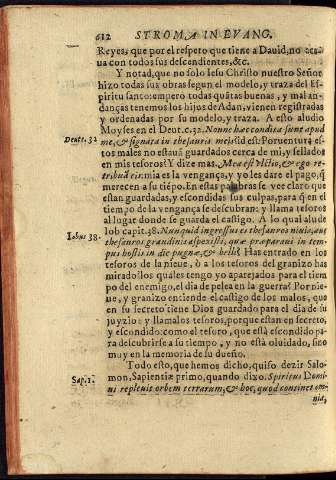 612 STROMA IN EVANG.
Reyes, que por el respeto que tiene a Dauid, no
ua con todos sus descendientes, &c.
Y notad, que no solo Iesu Christo nuestro Señor
hizo todas sus obras segun el modelo, y traza del Es-
piritu santo: empero todas quãtas buenas, y mal an-
danças tenemos los hijos de Adan, vienen registradas
y ordenadas por su modelo, y traza. A esto aludio
Moyses en el Deut. c. 32. Nonne hæc condita sunt apud
Deute. 32
me, & signata in thesauris meis? id est: Poruentura es-
tos males no estauã guardados cerca de mi, y sellados
en mis tesoros? Y dize mas. Mea est vltio, & ego re-
tribuã eis: mia es la vengança, y yo les dare el pago, q̃
merecen a su tiẽpo. En estas palabras se vee claro que
estan guardadas, y escondidas sus culpas, para q̃ en el
tiempo de la vengança se descubran: y llama tesoros
al lugar donde se guarda el castigo. A lo qual alude
Iob capit. 38. Nunquid ingressus es thesauros niuis, aut
Iobus 38.
thesauros grandinis aspexisti, quæ præparaui in tem-
pus hostis in die pugnæ, & belli? Has entrado en los
tesoros de la nieue, ò a los tesoros del granizo has
mirado? los quales tengo yo aparejados para el tiem
po del enemigo, el dia de pelea en la guerra? Por nie-
ue, y granizo entiende el castigo de los malos, que
en su secreto tiene Dios guardado para el dia de su
juyzio: y llamalos tesoros, porque estan en secreto,
y escondido: como el tesoro, que està escondido pa-
ra descubrirse a su tiempo, y no està oluidado, sino
muy en la memoria de su dueño.
Todo esto, que hemos dicho, quiso dezir Salo-
mon, Sapientiæ primo, quando dixo. Spiritus Domi-
Sap. 1.
ni repleuit orbem terrarum, & hoc, quod continet om-
nia,